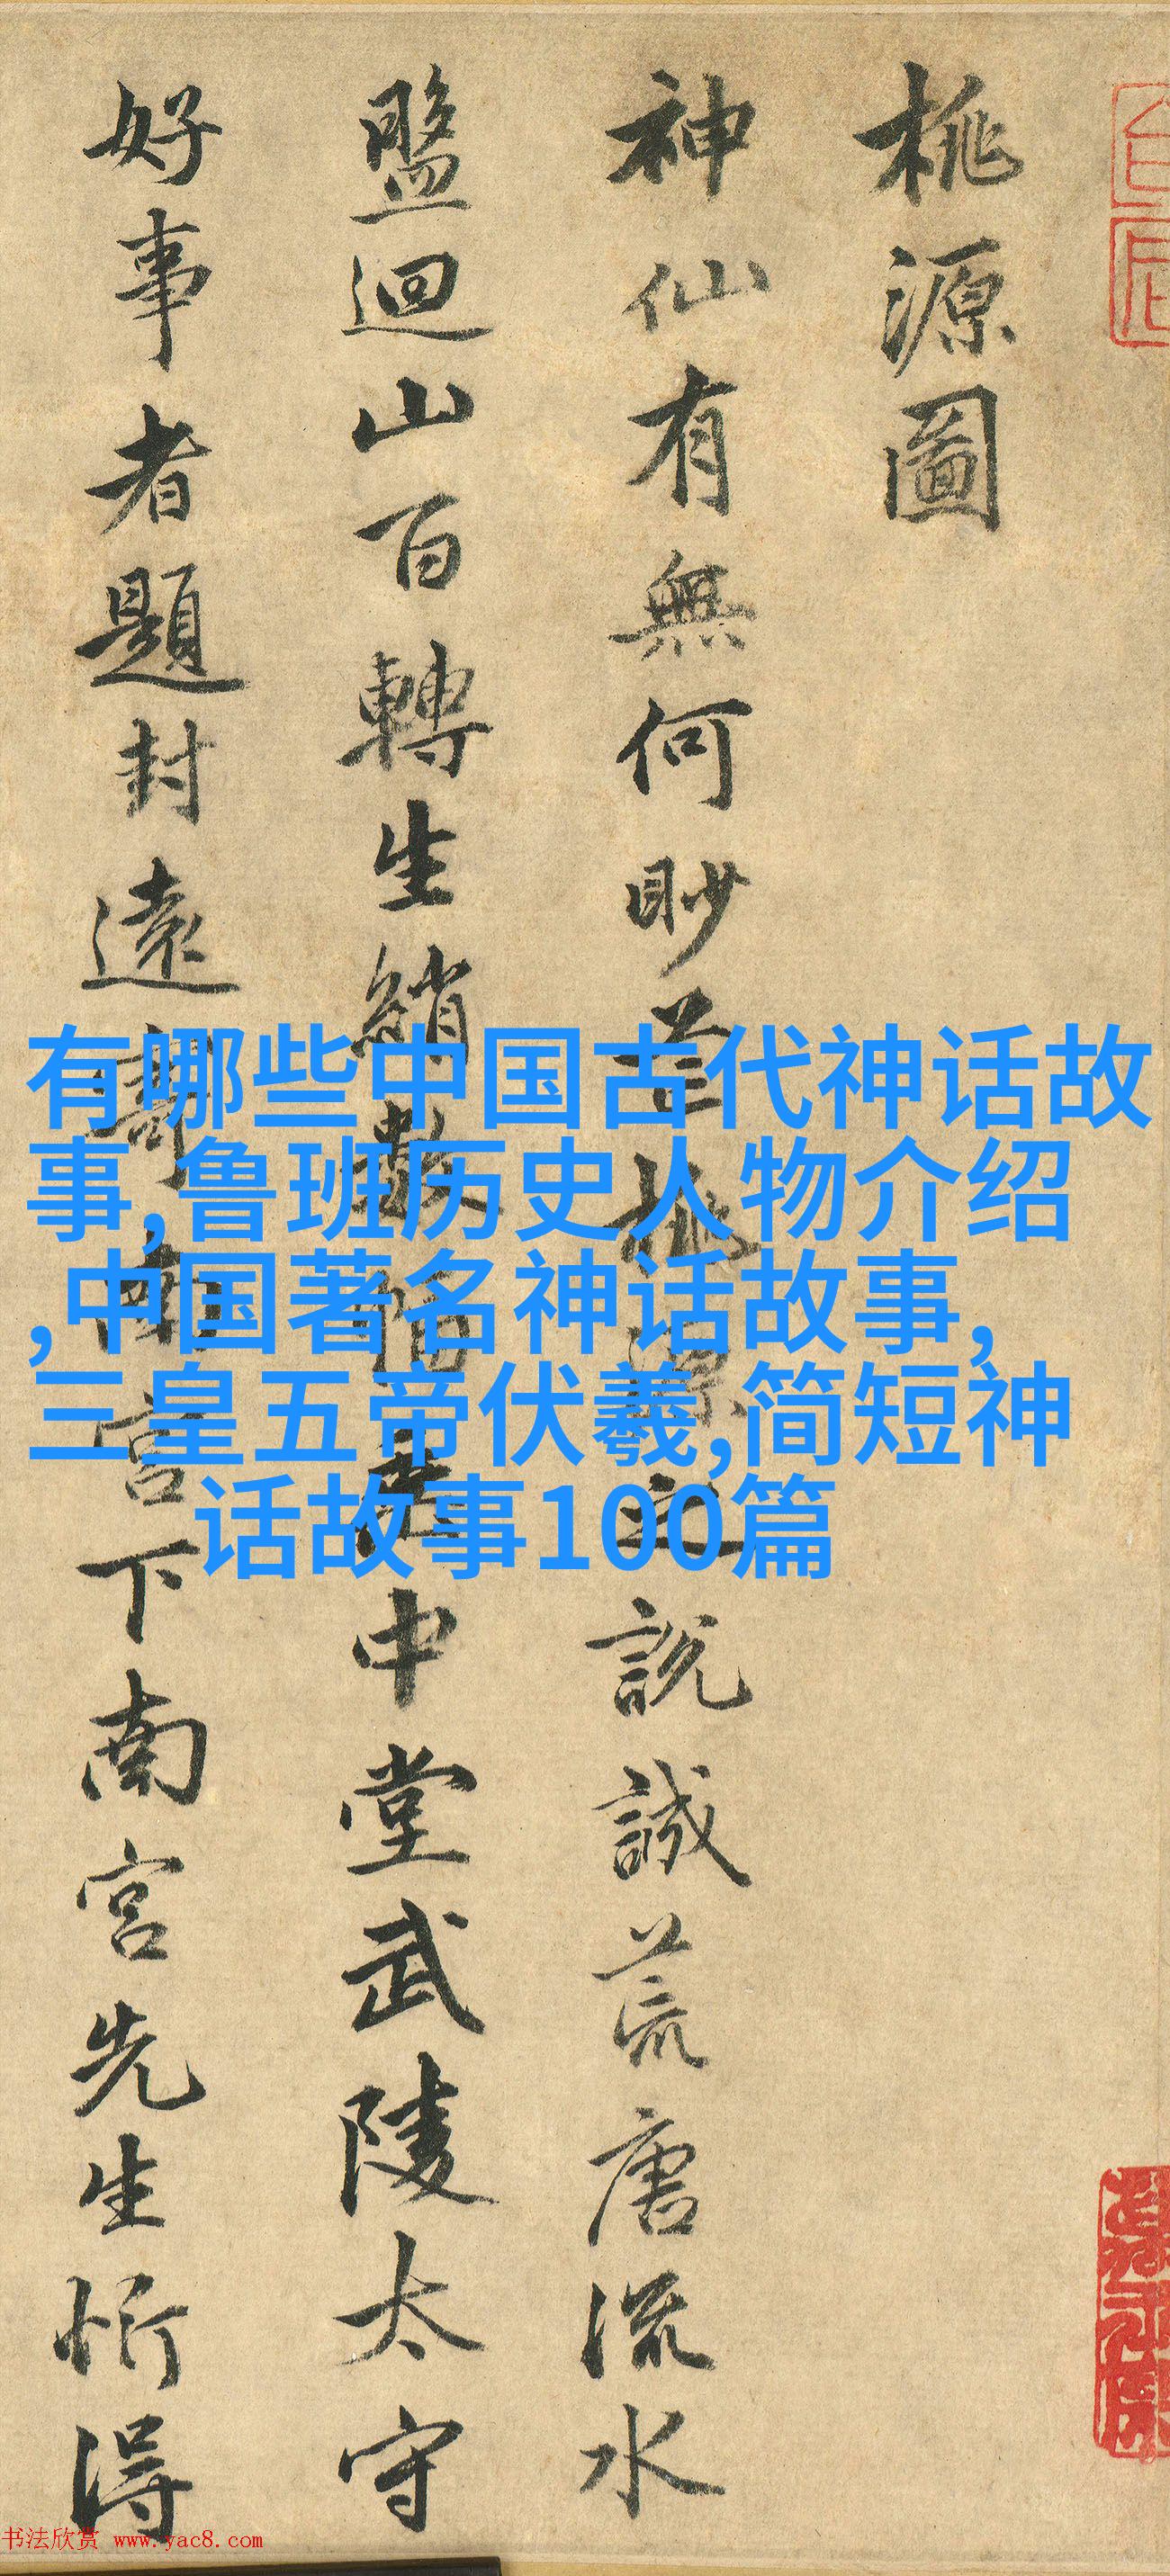 桃源圖
神仙有無何眇芒桃源之說誠荒唐流水
盤迴山百轉生綃數幅垂中堂武陵太守
好事者題封遠寄南宮下南宮先生忻得
有哪些中国古代神话故
事,鲁班历史人物介绍
,中国著名神话故事,
三皇五帝伏羲,简短神
话故事100篇
书法欣赏 www.yac8.com